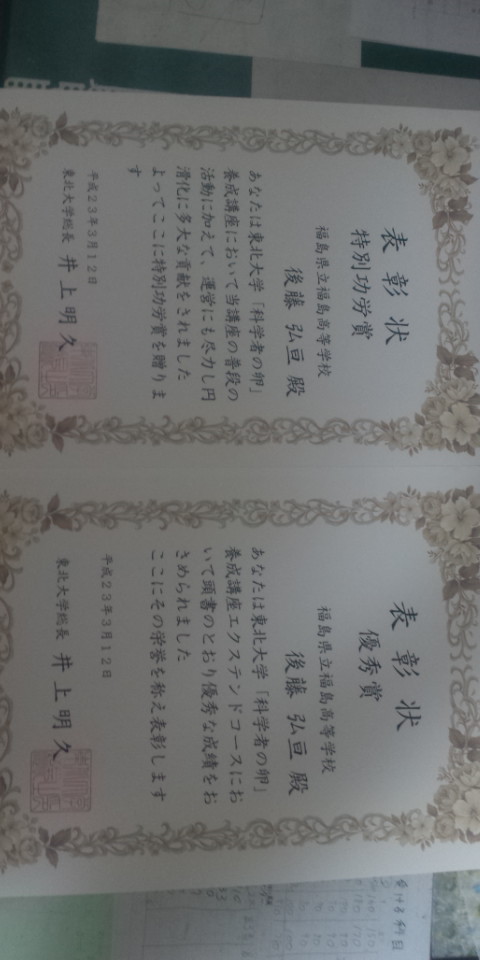 表彰状
特別功労賞
福島県立福島高等学校
後藤 弘亘 殿
あなたは東北大学「科学者の卵」
養成講座において当講座の普段の
活動に加えて、運営にも尽力し円
滑化に多大な貢献をされました
よってここに特別功労賞を贈りま
す
平成23年3月12日
東北大学総長 井上明久
表彰状
優秀賞
福島県立福島高等学校
後藤 弘亘 殿
あなたは東北大学「科学者の卵」
養成講座エクステンドコースにお
いて頭書のとおり優秀な成績をお
さめられました
ここにその栄誉を称え表彰します
平成23年3月12日
東北大学総長 井上明久